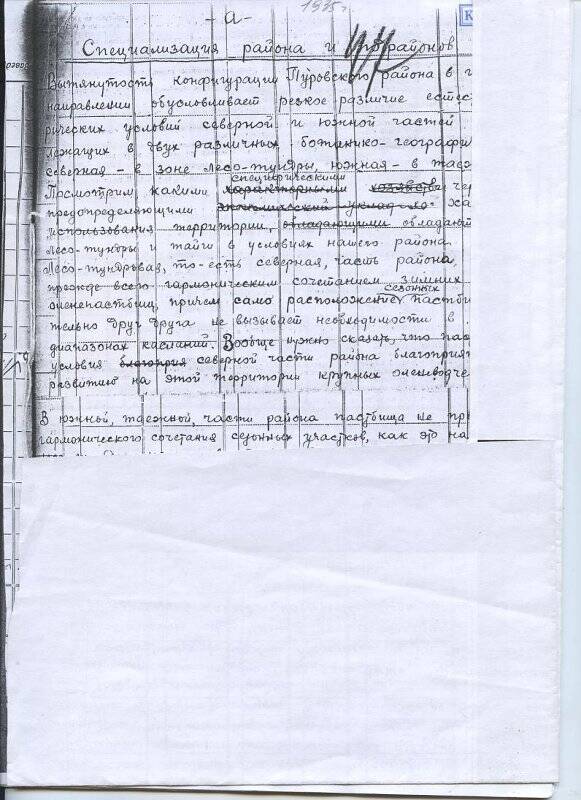 1975г
- а -
К
Специализация района и подрайонов
Вытянутость конфигурации Пуровского района в
направлении обусловливает резкое различие естес
рических условий северной и южной частей
лежащих в двух различных ботанико-географи
северная - в зоне лесо-тундры, южная - в
специфическими
Посмотрим какими характерными хозяйстве чер
предопределяющими экономический уклад
использования территории, обладающими обладают
лесо-тундры и тайги в условиях нашего района.
Лесо-тундровая, то-есть северная, часть района,
прежде всего гармоническим сочетанием зимних
сезонных
оленепастбищ, причем само расположение пастби
тельно друг друга не вызывает необходимости в
диапазонах касланий. Вообще нужно сказать, что пас
условия благоприя северной части района благоприят
развитию на этой территории крупных оленеводче
В южной, таежной, части района пастбища не пр
гармонического сочетания сезонных участков, как это на